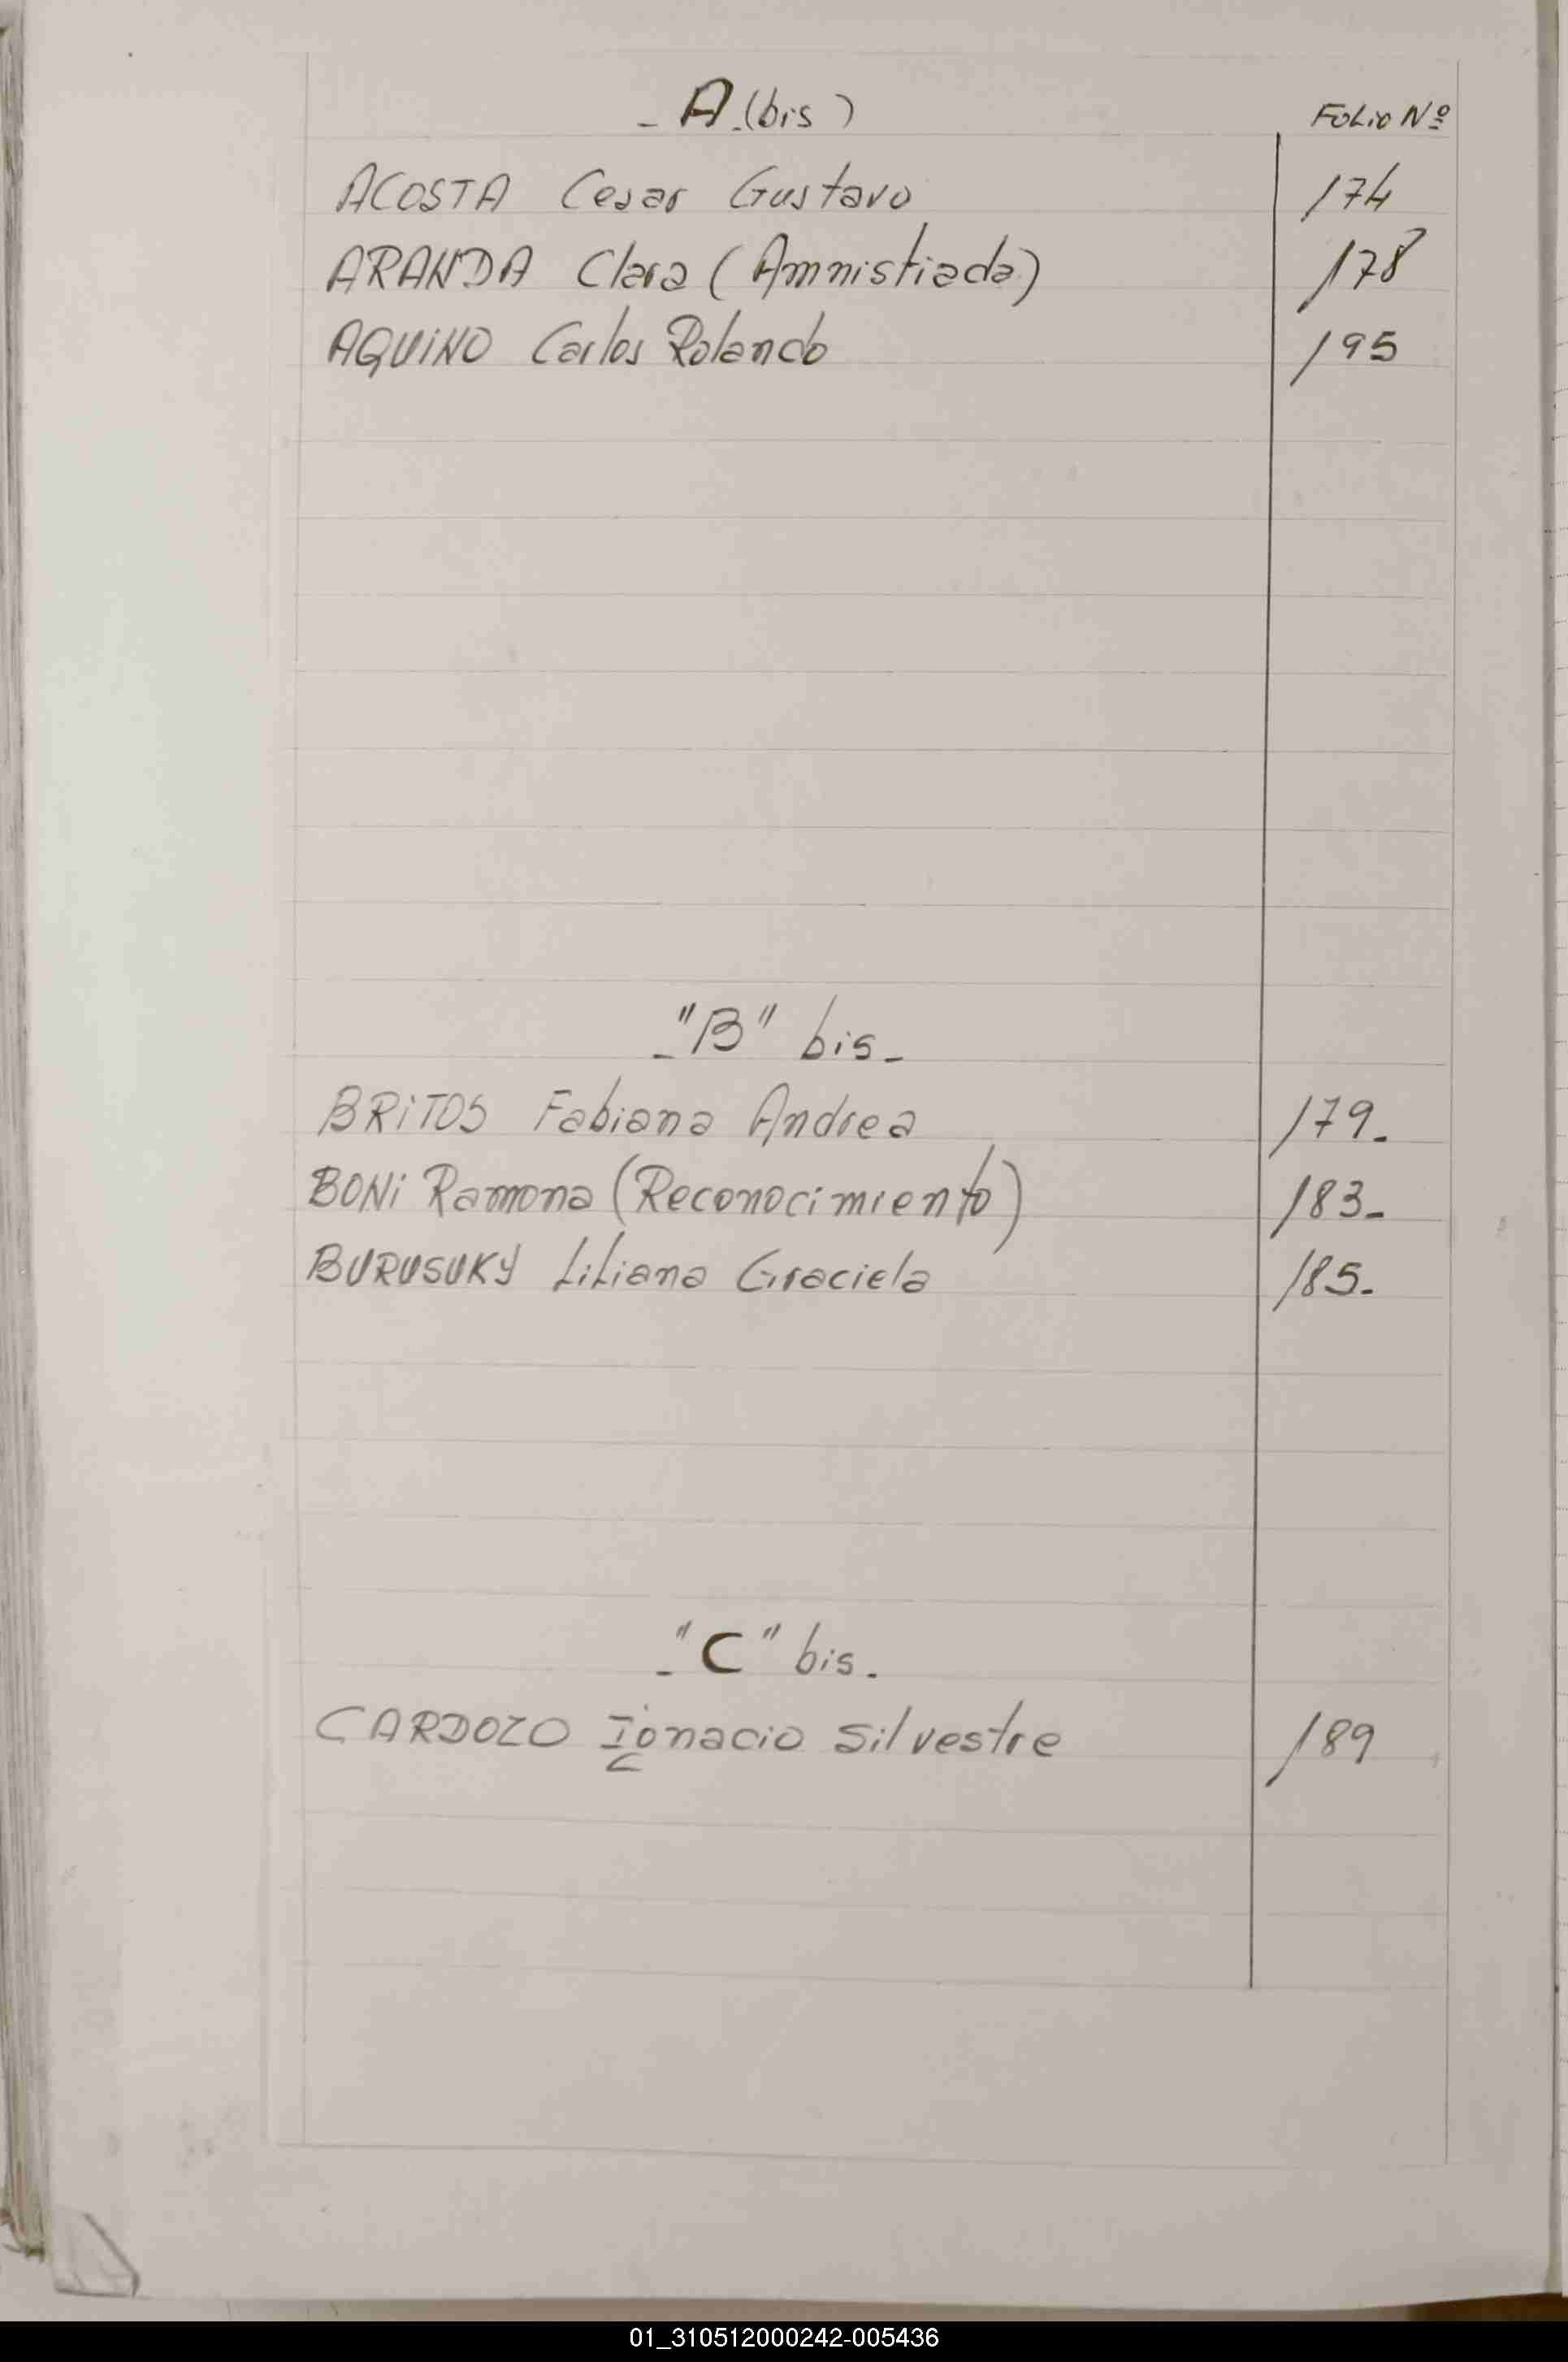 - A.(bis) Folio Nº
ACOSTA Cesar Gustavo 174
ARANDA Clara (Amnistiada) 178
AQUINO Carlos Rolando 195
-"B" bis-
BRITOS Fabiana Andrea 179-
BONI Ramona (Reconocimiento) 183-
BURUSUKY Liliana Graciela 185-
-"C" bis-
CARDOZO Ignacio Silvestre 189
01_310512000242-005436